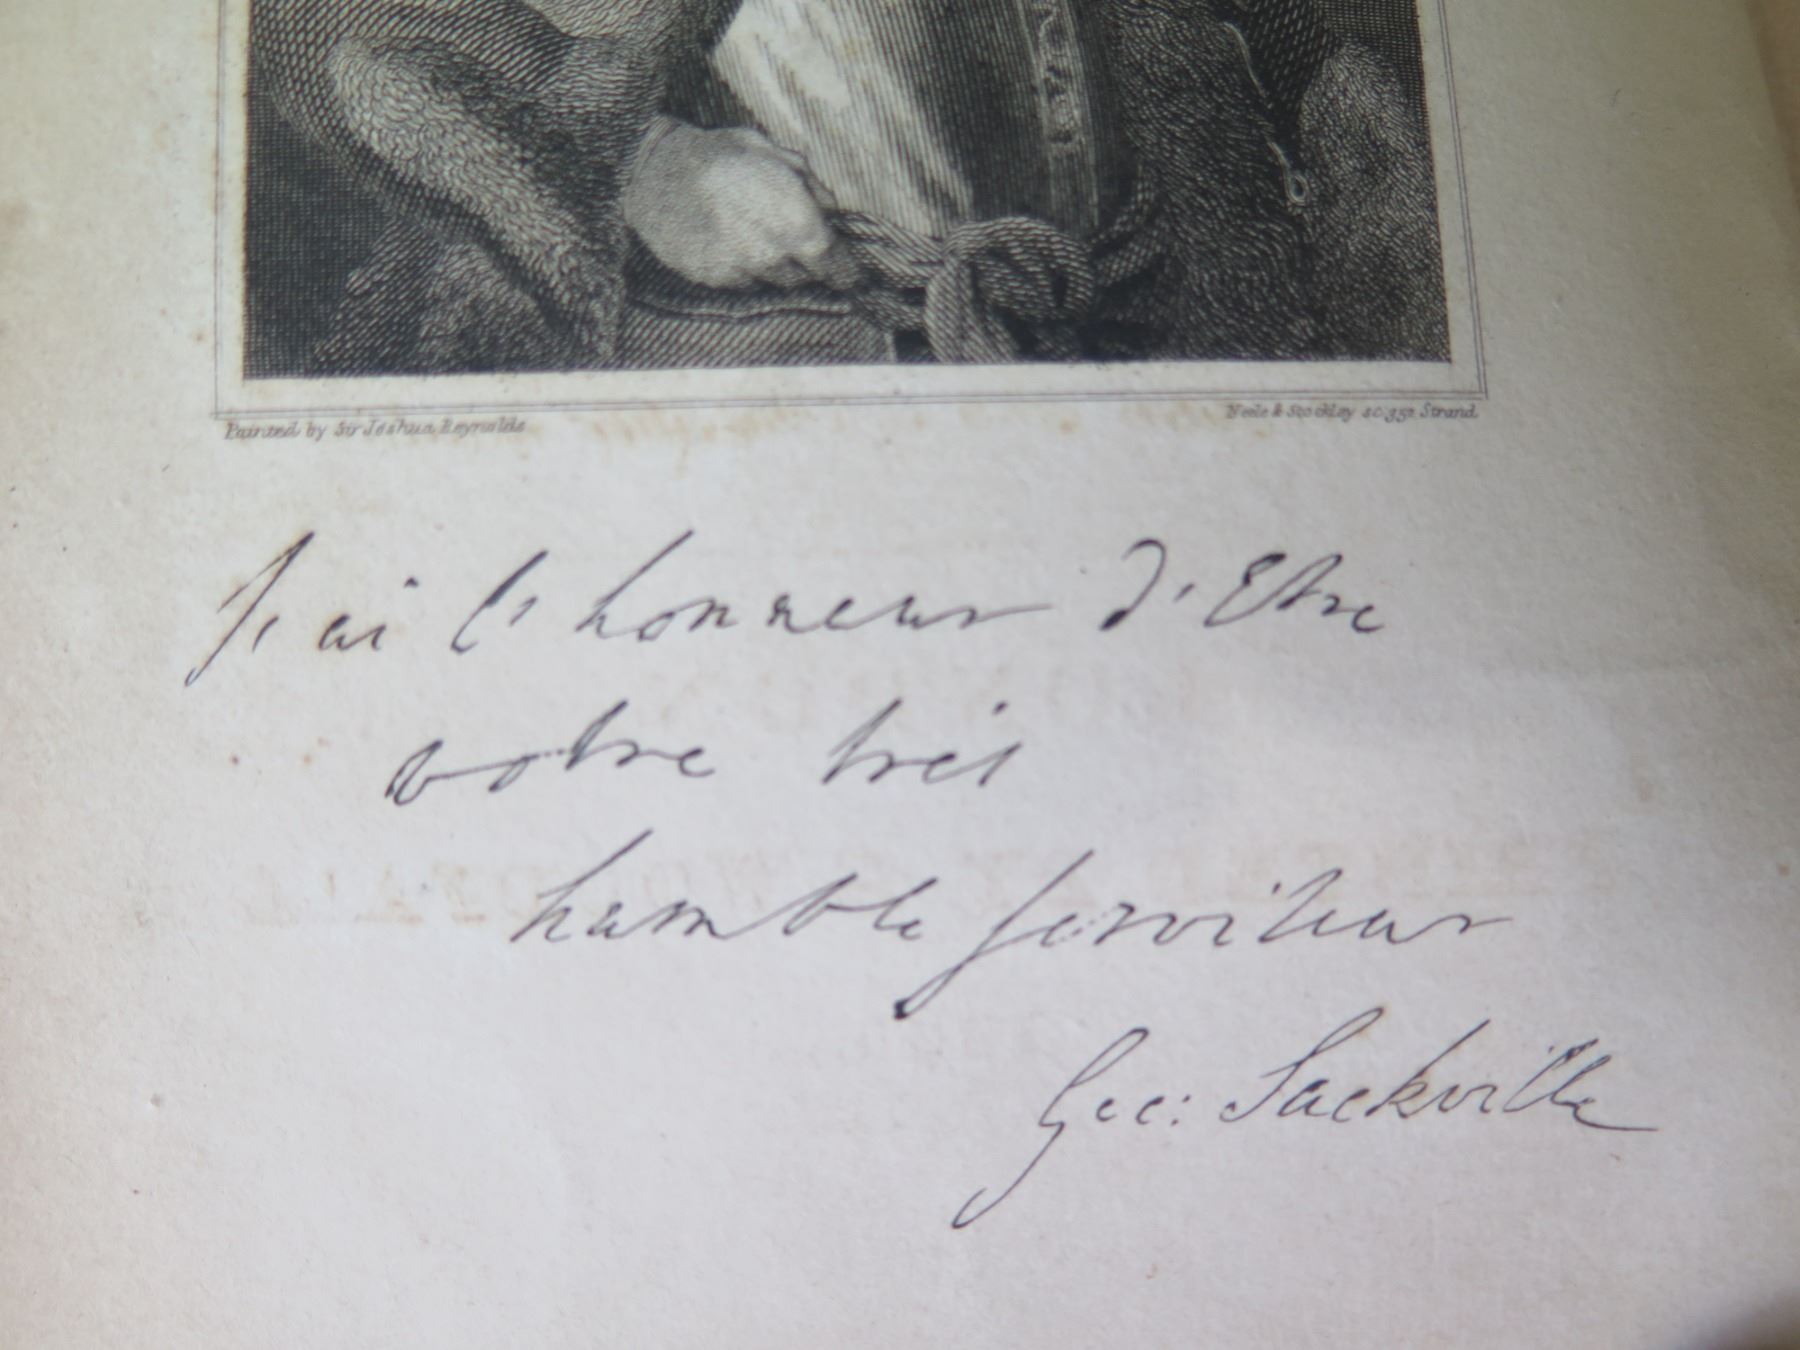 Painted by Sir Joshua Reynolds
Neele & Stockley sc. 352 Strand
J'ai l'honneur d'Etre
votre trés
humble serviteur
Geo: Sackville